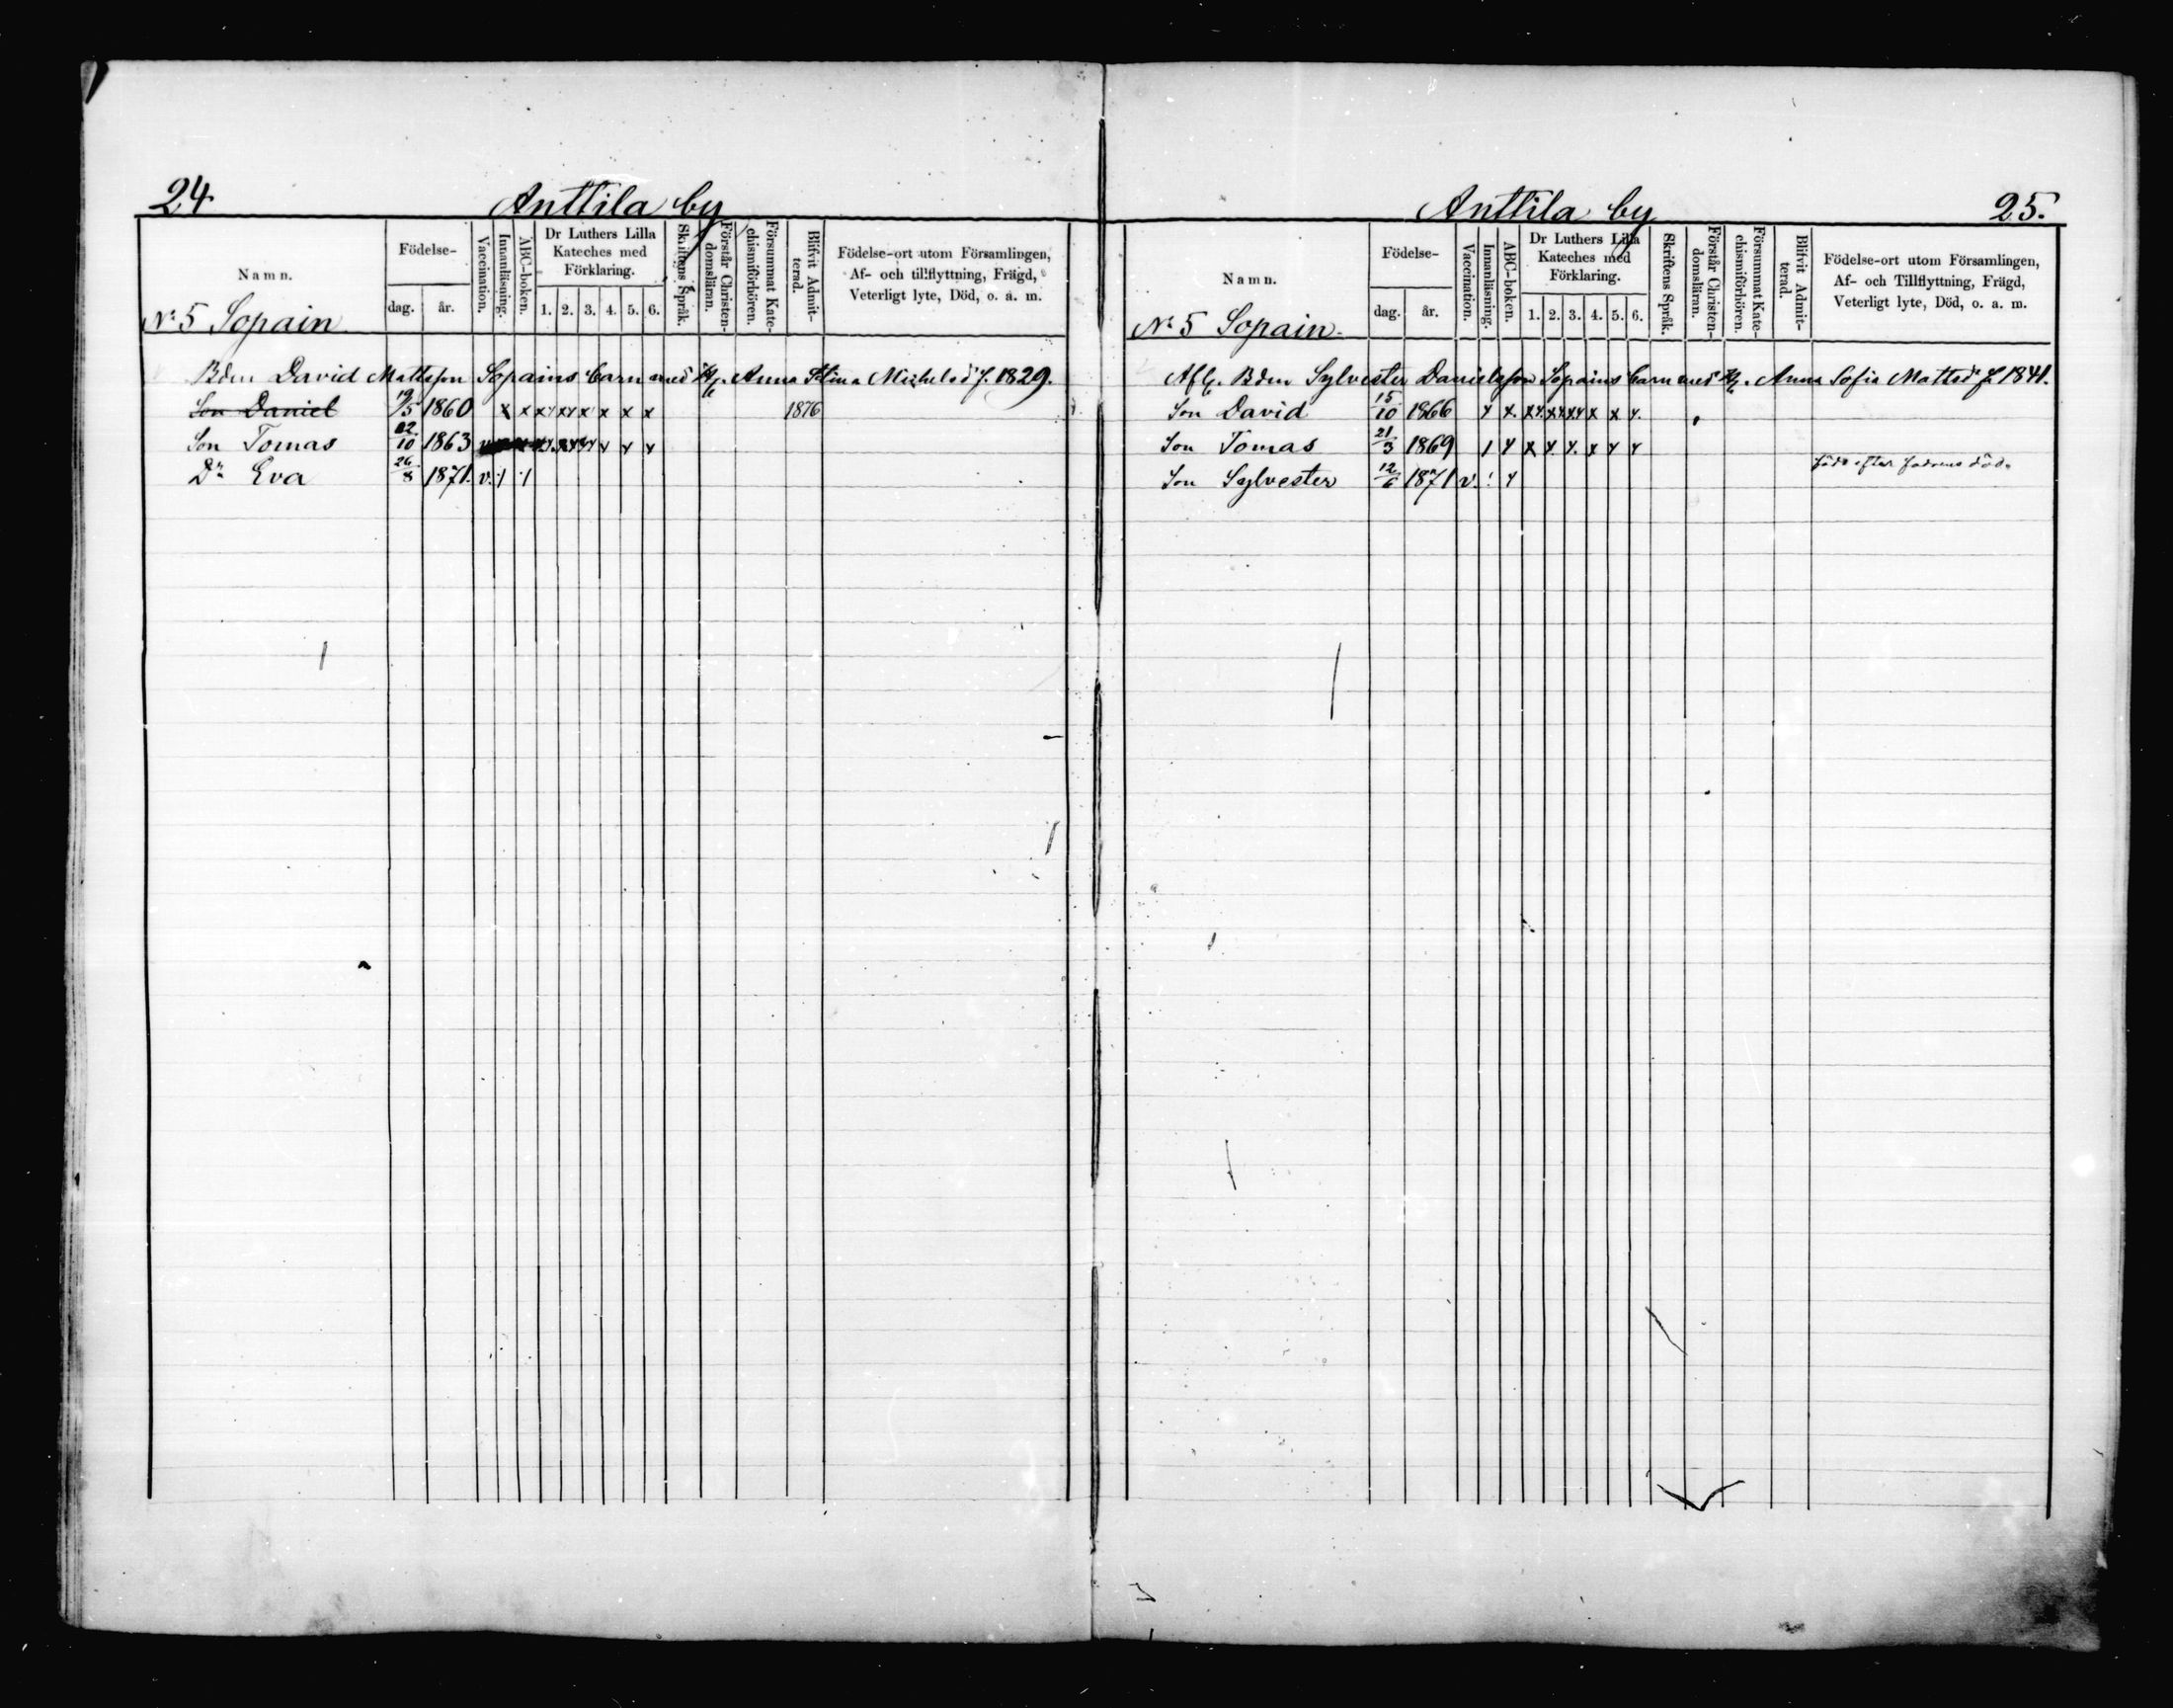 24. Anttila by
Namn. Födelse- dag. år. Vaccination. Innanläsning. ABC-boken. Dr Luthers Lilla Kateches med Förklaring. 1. 2. 3. 4. 5. 6. Skriftens Språk. Förstår Christen-domsläran. Försummat Kate-chismiförhören. Blifvit Admit-terad. Födelse-ort utom Församlingen, Af- och tillflyttning, Frägd, Veterligt lyte, Död, o. a. m.
No 5 Sopain
Bden David Mattsson Sopains barn med Anna Stina Michelsd f. 1829.
Son Daniel 19/5 1860 x x x x x x x x 1876
Son Tomas 02/10 1863
Dr Eva 26/8 1871. v.
Anttila by 25.
Namn. Födelse- dag. år. Vaccination. Innanläsning. ABC-boken. Dr Luthers Lilla Kateches med Förklaring. 1. 2. 3. 4. 5. 6. Skriftens Språk. Förstår Christen-domsläran. Försummat Kate-chismiförhören. Blifvit Admit-terad. Födelse-ort utom Församlingen, Af- och Tillflyttning, Frägd, Veterligt lyte, Död, o. a. m.
No 5 Sopain
Afl. Bden Sylvester Danielsson Sopains barn med Anna Sofia Mattsd f. 1841.
Son David 15/10 1866
Son Tomas 21/3 1869
Son Sylvester 12/6 1871 v. född efter fadrens död.